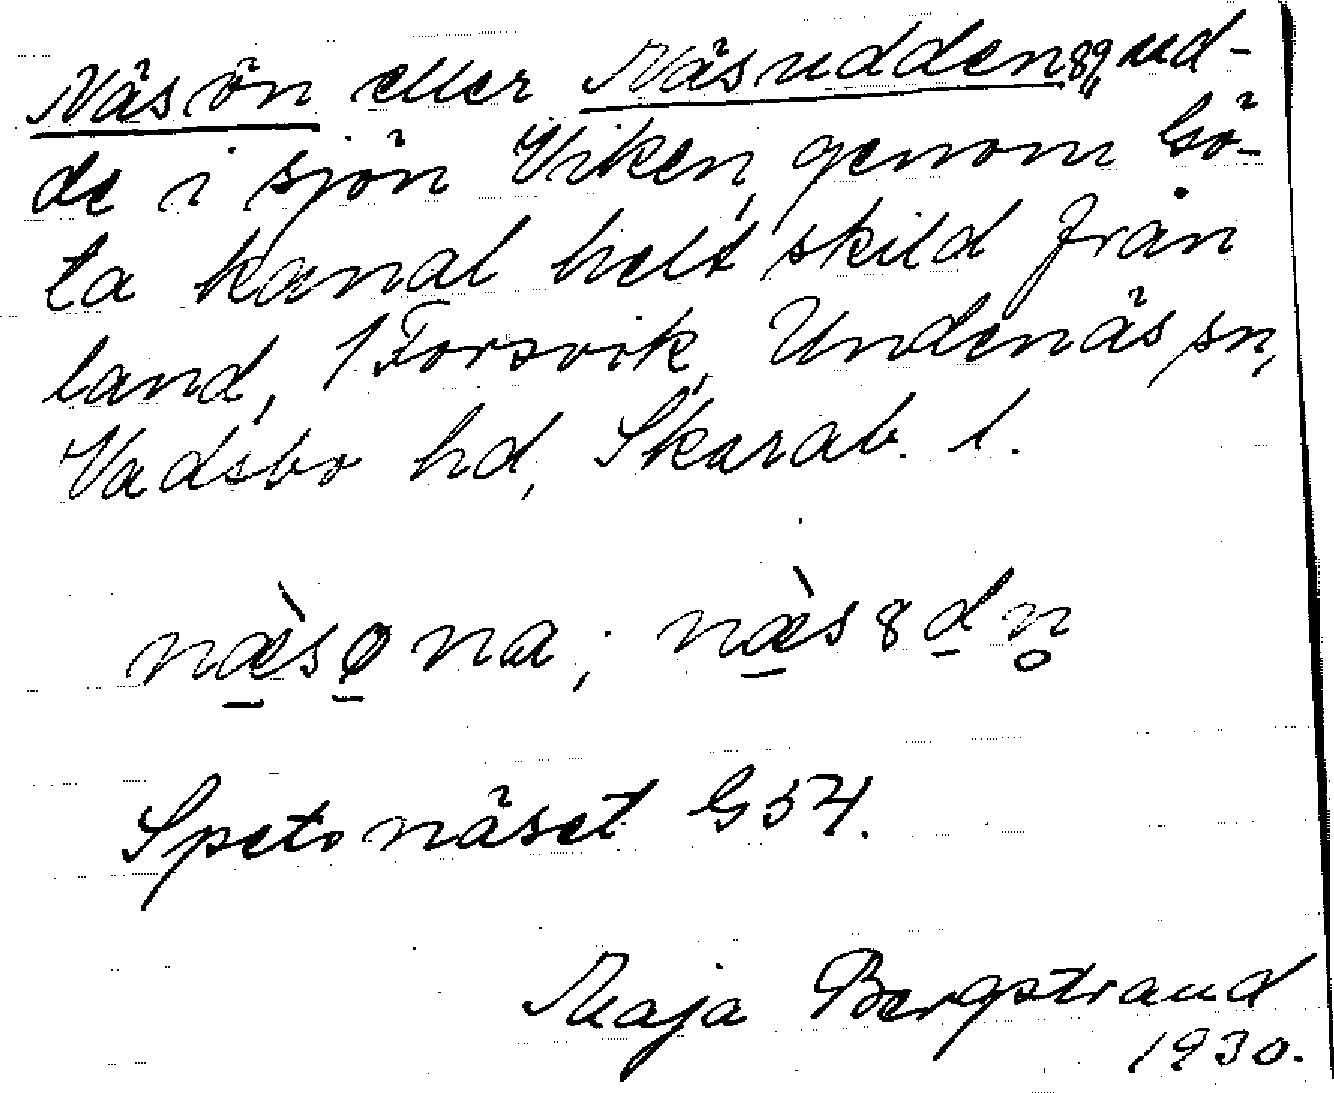 Näsön eller Näsudden, ud-
de i sjön Viken, genom Gö-
ta kanal helt skild från
land, 1 Forsvik, Undenäs sn,
Vadsbo hd, Skarab. l.
næ̀søna; næ̀s8dn̥
Spetsnäset G54.
Maja Bergstrand
1930.